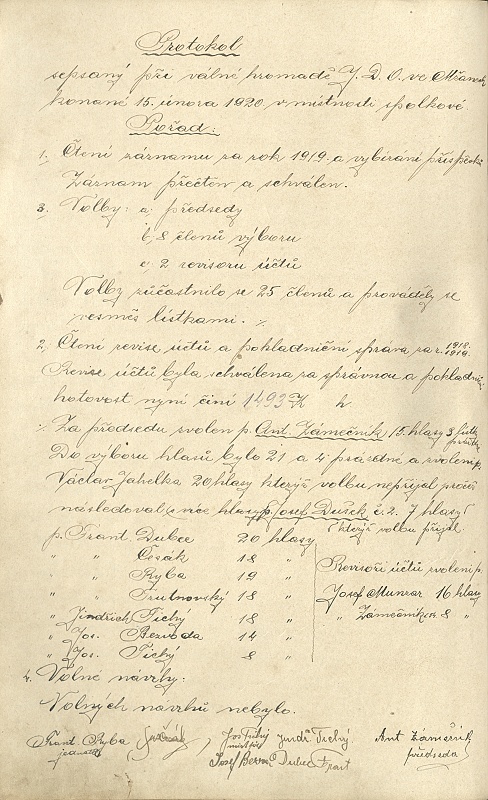 Protokol
sepsaný při válné hromadě Ј. D. O. ve Mžanech
konané 15. února 1920 v místnosti spolkové.
Pořad:
1. Čtení záznamu za rok 1919. a vybírání příspěvků
Záznam přečten a schválen.
3. Volby: a, předsedy
b, 8 členů výboru
c, 2 revisoru účtů
Volby zúčastnilo se 25 členů a prováděly se
vesměs lístkami. ⁒
2, Čtení revise účtů a pokladniční správa za r. 1918. 1919.
Revise účtů byla schválena za správnou a pokladní
hotovost nyní činí 1493 K h
⁒ Za předsedu zvolen p. Ant. Zámečník 15. hlasy 3 lístky prázdné
Do výboru hlasů bylo 21 a 4 prázdné a zvoleni p.
Václav Jahelka 20 hlasy kterýž volbu nepřijal proto
následoval více hlasy p. Josef Dušek č. 2. 7 hlasy
(kterýž volbu přijal.
p. Frant. Dubec 20 hlasy
„ „ Česák 18 „
„ „ Ryba 19 „
„ „ Trutnovský 18 „
„ Jindřich Tichý 18 „
„ Jos. Bezvoda 14 „
„ Jos. Tichý 8 „
Revisoři účtů zvoleni p.
Josef Munzar 16 hlasy
„ Zámečník 8 „
4. Volné návrhy:
Volných navrhů nebylo.
Frant. Ryba
jednatel
Jos Tichý
Jindř. Tichý.
Ant Zámečník
předseda
Josef Bezvoda
Dubec Frant